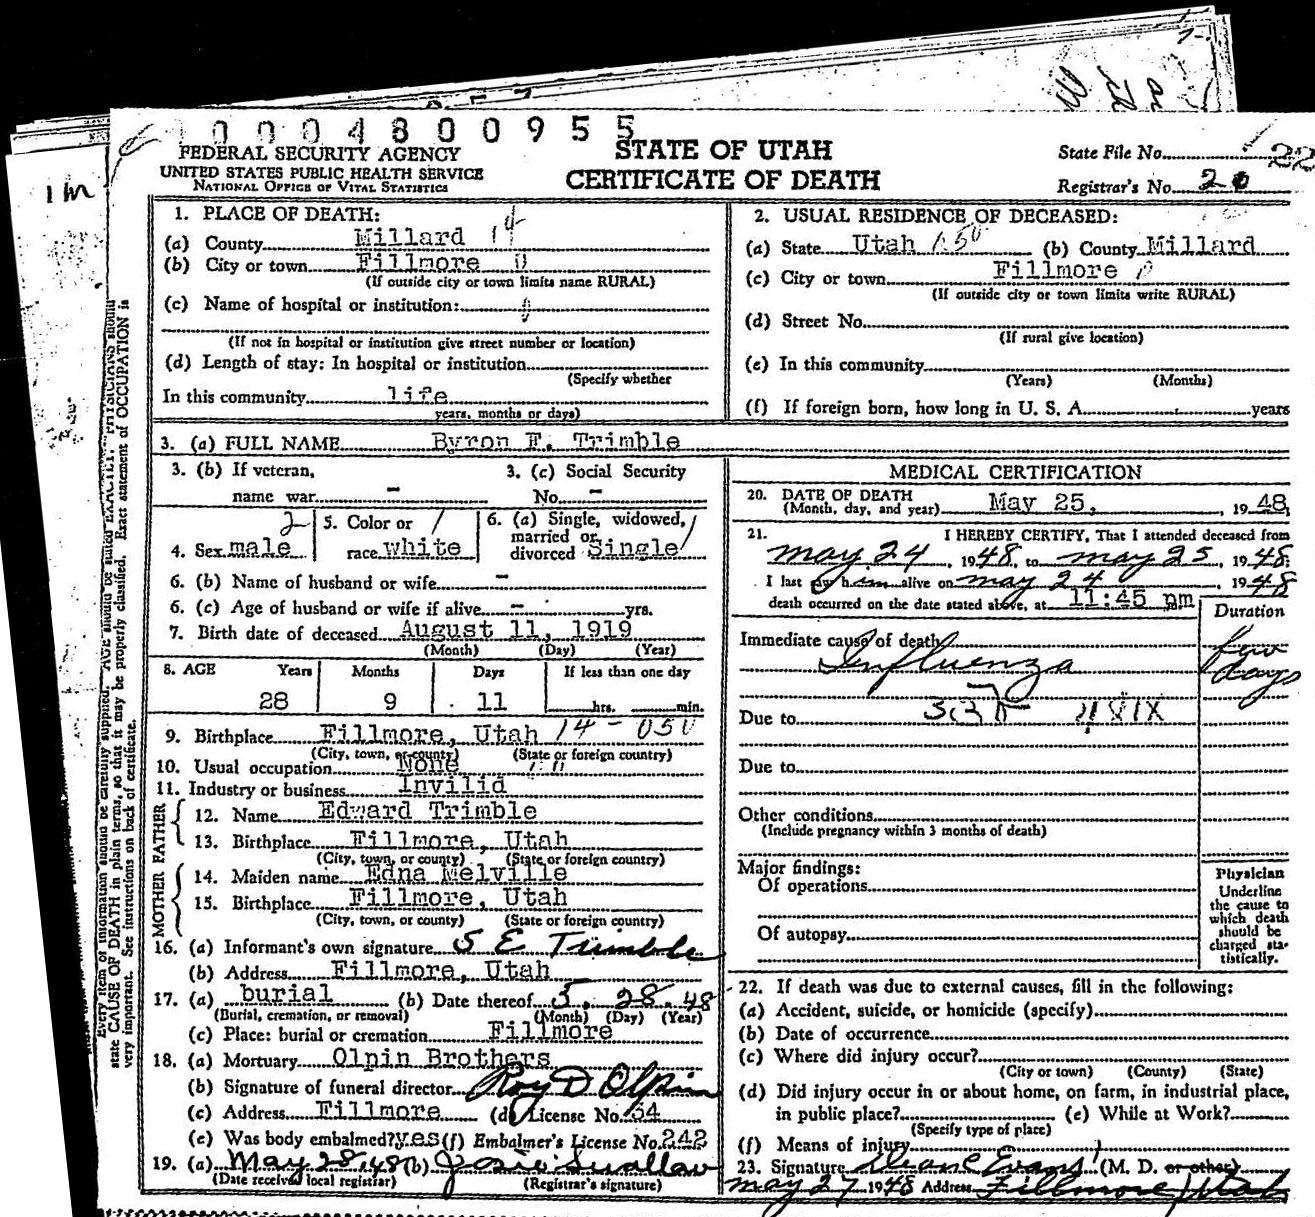 10004800955
FEDERAL SECURITY AGENCY
UNITED STATES PUBLIC HEALTH SERVICE
NATIONAL OFFICE OF VITAL STATISTICS
STATE OF UTAH
CERTIFICATE OF DEATH
State File No. 22
Registrar's No. 20
1 m
1. PLACE OF DEATH:
(a) County Millard 14
(b) City or town Fillmore 0
(If outside city or town limits name RURAL)
(c) Name of hospital or institution:
(If not in hospital or institution give street number or location)
(d) Length of stay: In hospital or institution
(Specify whether
In this community life
years, months or days)
2. USUAL RESIDENCE OF DECEASED:
(a) State Utah (b) County Millard
(c) City or town Fillmore
(If outside city or town limits write RURAL)
(d) Street No.
(If rural give location)
(e) In this community
(Years) (Months)
(f) If foreign born, how long in U. S. A. years
3. (a) FULL NAME Byron F. Trimble
3. (b) If veteran, name war -
3. (c) Social Security No. -
4. Sex male 2
5. Color or race white /
6. (a) Single, widowed, married or divorced Single /
6. (b) Name of husband or wife -
6. (c) Age of husband or wife if alive - yrs.
7. Birth date of deceased August 11, 1919
(Month) (Day) (Year)
8. AGE Years Months Days If less than one day
28 9 11 hrs. min.
9. Birthplace Fillmore, Utah 14 - 050
(City, town, or county) (State or foreign country)
10. Usual occupation None
11. Industry or business Invilid
FATHER
12. Name Edward Trimble
13. Birthplace Fillmore, Utah
(City, town, or county) (State or foreign country)
MOTHER
14. Maiden name Edna Melville
15. Birthplace Fillmore, Utah
(City, town, or county) (State or foreign country)
16. (a) Informant's own signature S E Trimble
(b) Address Fillmore, Utah
17. (a) burial (b) Date thereof 5. 28. 48
(Burial, cremation, or removal) (Month) (Day) (Year)
(c) Place: burial or cremation Fillmore
18. (a) Mortuary Olpin Brothers
(b) Signature of funeral director Roy D Olpin
(c) Address Fillmore (d) License No. 54
(e) Was body embalmed? yes (f) Embalmer's License No. 242
19. (a) May 28, 48 (b) Josie Swallow
(Date received local registrar) (Registrar's signature)
MEDICAL CERTIFICATION
20. DATE OF DEATH
(Month, day, and year) May 25, 1948
21. I HEREBY CERTIFY, That I attended deceased from
may 24, 1948, to may 25, 1948;
I last saw him alive on may 24, 1948
death occurred on the date stated above, at 11:45 pm
Duration
Immediate cause of death
Influenza
few days
Due to
Due to
Other conditions
(Include pregnancy within 3 months of death)
Major findings:
Of operations
Of autopsy
Physician
Underline
the cause to
which death
should be
charged sta-
tistically.
22. If death was due to external causes, fill in the following:
(a) Accident, suicide, or homicide (specify)
(b) Date of occurrence
(c) Where did injury occur?
(City or town) (County) (State)
(d) Did injury occur in or about home, on farm, in industrial place,
in public place? (e) While at Work?
(Specify type of place)
(f) Means of injury
23. Signature Deane Evans (M. D. or other)
may 27 1948 Address Fillmore, Utah
Every item of information should be carefully supplied. AGE should be stated EXACTLY. PHYSICIANS should
state CAUSE OF DEATH in plain terms, so that it may be properly classified. Exact statement of OCCUPATION is
very important. See instructions on back of certificate.